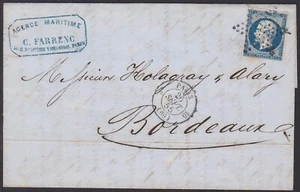 AGENCE MARITIME
C. FARRENC
Messieurs Holagray & Alary
PARIS
Bordeaux